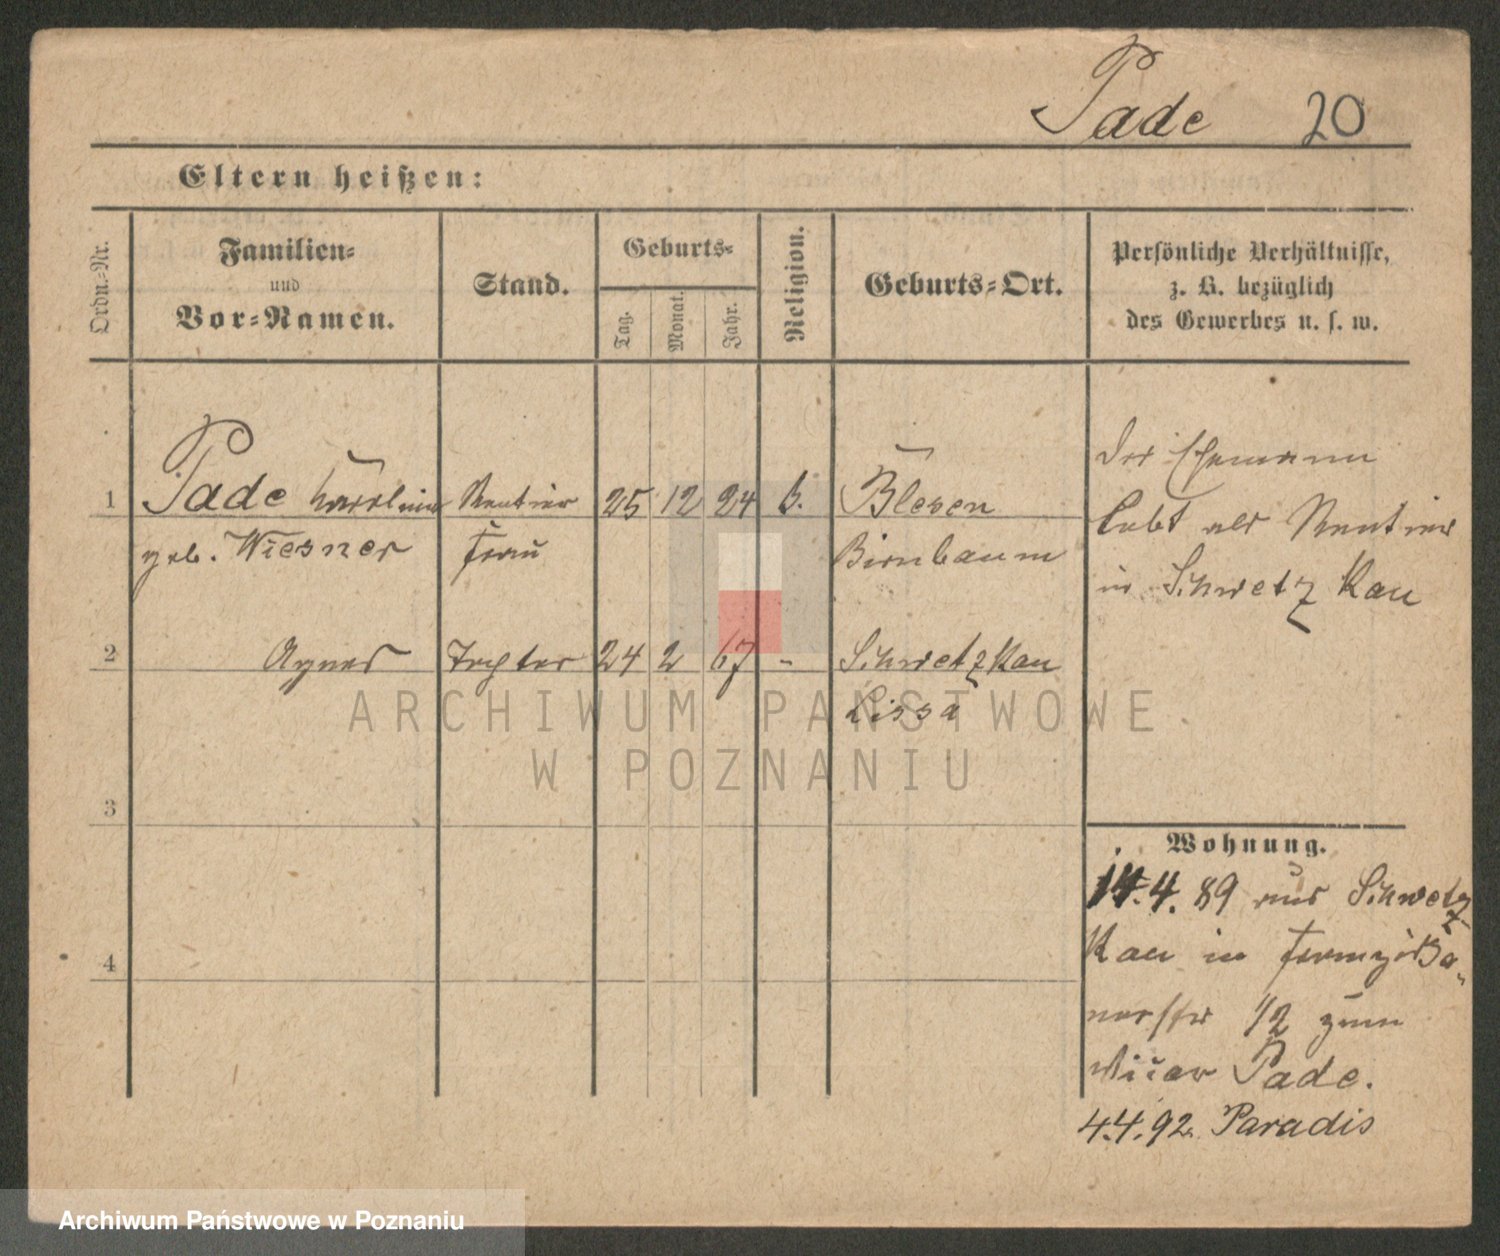 Pade 20
Eltern heißen:
Ordn.-Nr.
Familien-
und
Vor-Namen.
Stand.
Geburts-
Tag.
Monat.
Jahr.
Religion.
Geburts-Ort.
Persönliche Verhältnisse,
z. B. bezüglich
des Gewerbes u. s. w.
1 Pade Karoline Rentier 25 12 24 k. Blesen
geb. Wiesner Frau Birnbaum
Der Ehemann
lebt als Rentier
in Schwetzkau
2 Agnes Tochter 24 2 67 - Schwetzkau
Lissa
3
4
Wohnung.
14.4.89 aus Schwetz
kau in
1/2 zum
Vicar Pade.
4.4.92. Paradis
ARCHIWUM PAŃSTWOWE
W POZNANIU
Archiwum Państwowe w Poznaniu